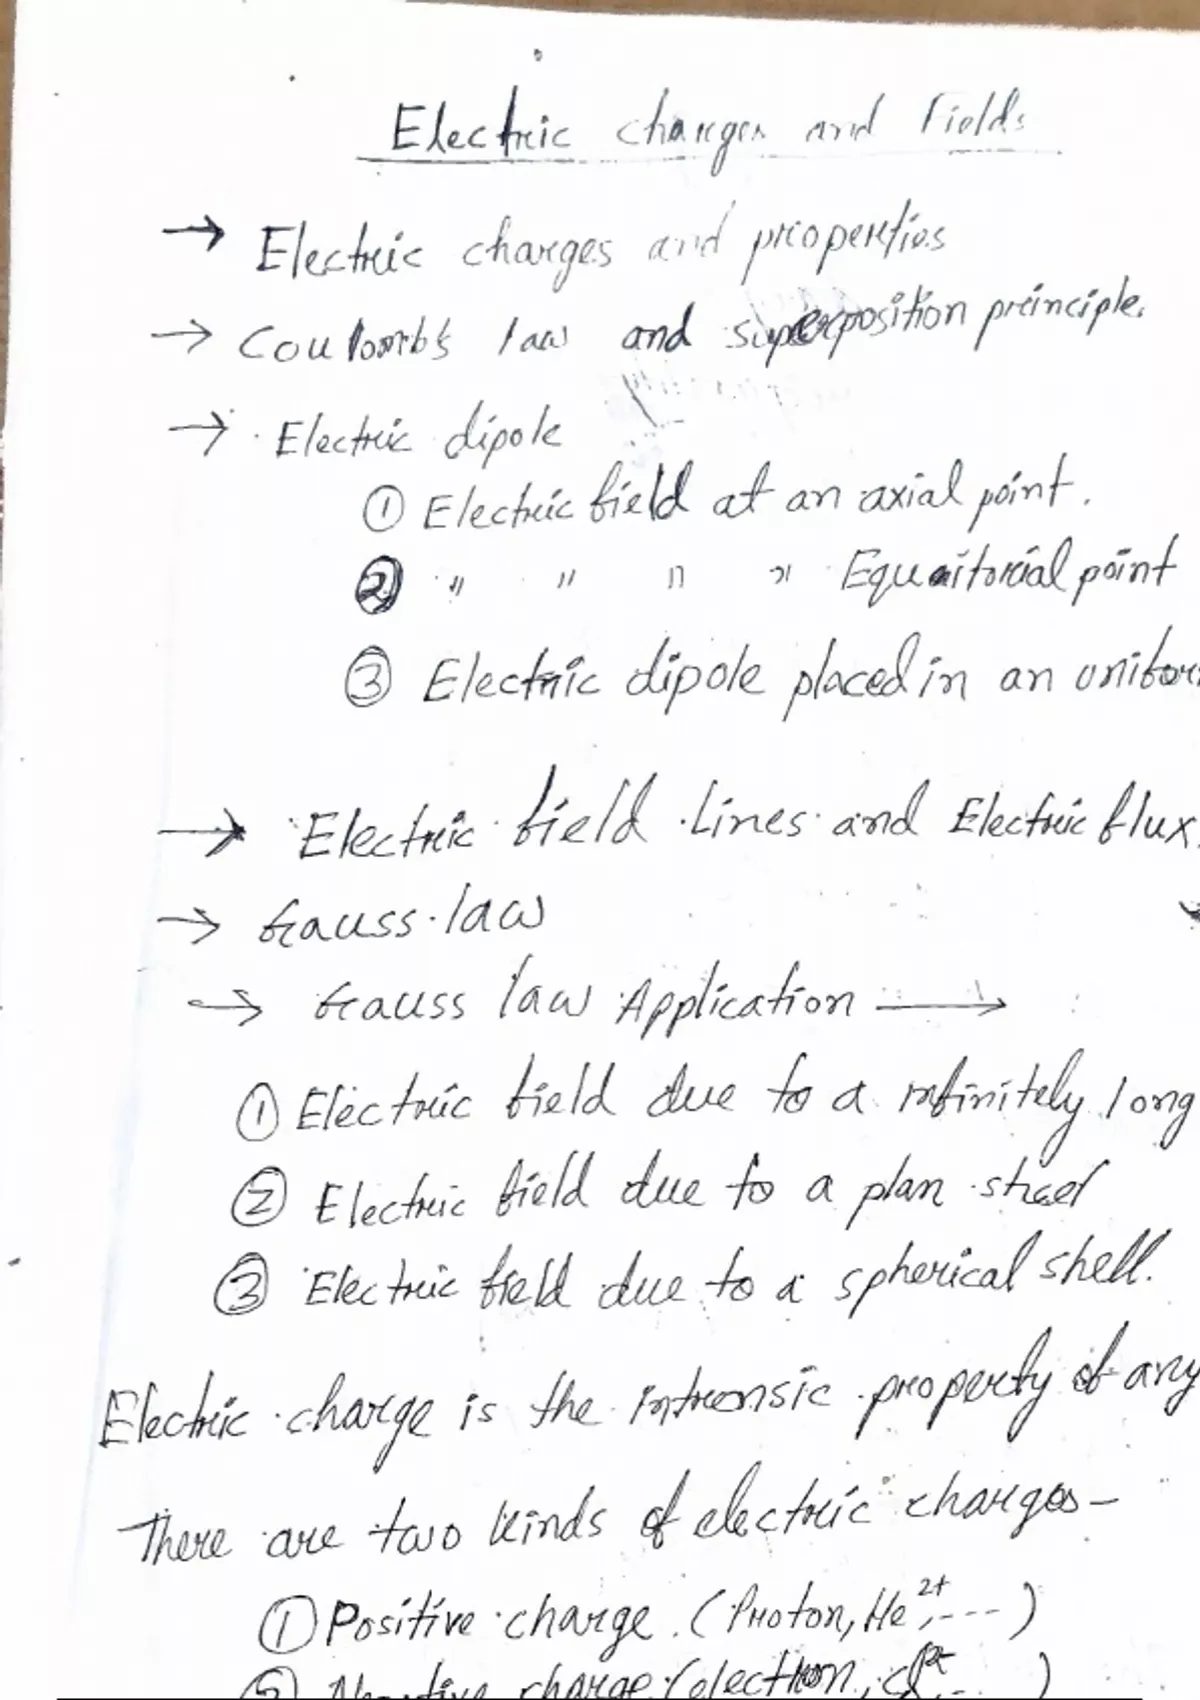 Electric charges and Fields
→ Electric charges and properties
→ Coulomb's law and superposition principle.
→ Electric dipole
① Electric field at an axial point.
② " " " " Equaitorial point
③ Electric dipole placed in an unifor
→ Electric field Lines and Electric flux.
→ Gauss law
→ Gauss law Application →
① Electric field due to a infinitely long
② Electric field due to a plan sheet
③ Electric field due to a spherical shell.
Electric charge is the intrensic property of any
There are two kinds of electric charges-
① Positive charge. (Proton, He²⁺, ---)
② Negative charge. (electron, )